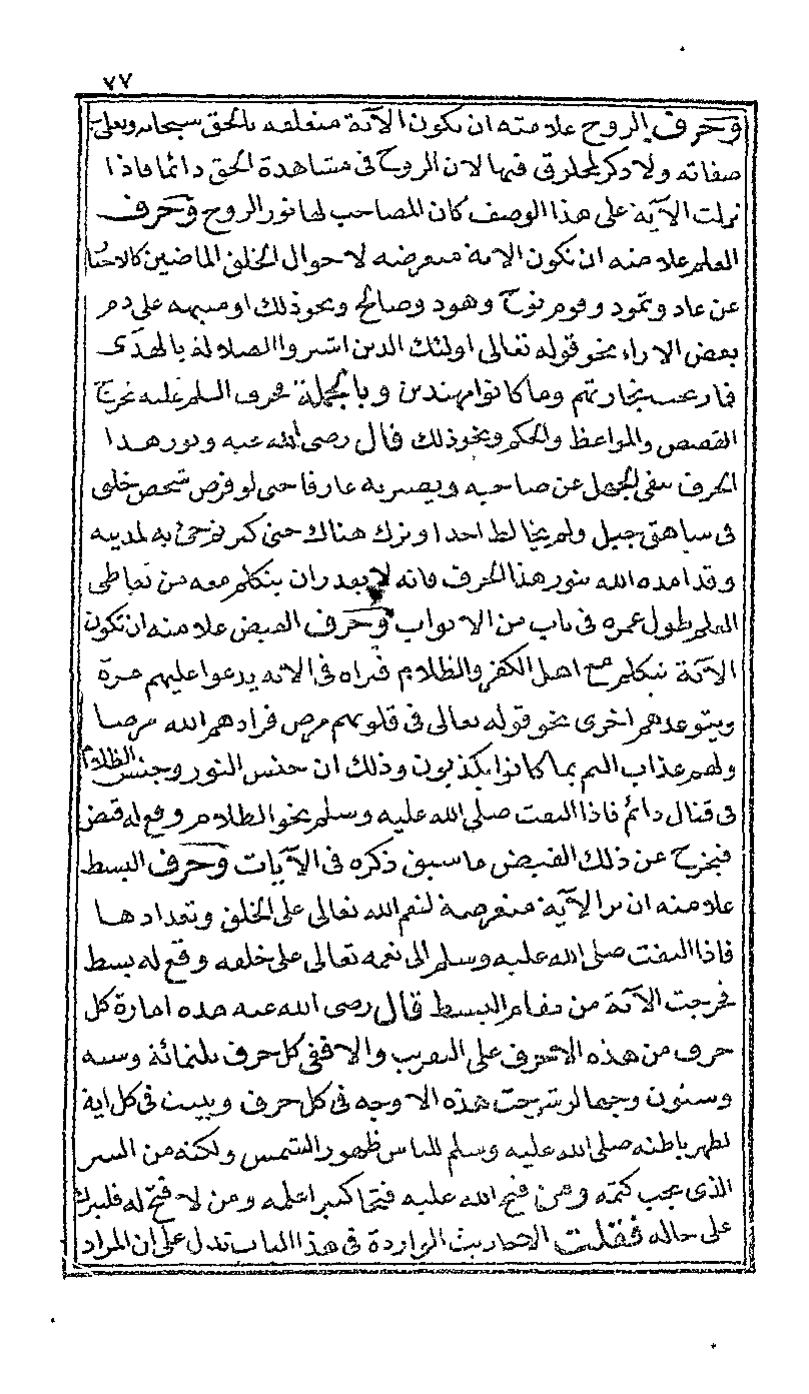 ٧٧
وحرف الروح علامته ان تكون الآية متعلقة بالحق سبحانه وتعلى
صفاته ولا ذكر لمخلوق فيها لان الروح فى مشاهدة الحق دائما فاذا
نزلت الآية على هذا الوصف كان المصاحب لها نور الروح وحرف
العلم علامته ان تكون الاية متعرضة لاحوال الخلق الماضين كالاخبا
عن عاد وثمود وقوم نوح وهود وصالح ونحو ذلك او منبهه على ذم
بعض الاراء نحو قوله تعالى اولئك الذين اشتروا الضلالة بالهدى
فما ربحت تجارتهم وما كانوا مهتدين وبالجملة فحرف العلم عليه تخرج
القصص والمواعظ والحكم ونحو ذلك قال رضى الله عنه ونور هذا
الحرف ينفى الجهل عن صاحبه ويصير به عارفا حتى لو فرض شخص خلق
فى شاهق جبل ولم يخالط احدا وترك هناك حتى كبر ثم جئ به لمدينه
وقد امده الله بنور هذا الحرف فانه لا يقدر ان يتكلم معه من تعاطى
العلم طول عمره فى باب من الابواب وحرف القبض علامته ان تكون
الآية تتكلم مع اهل الكفر والظلام فتراه فى الاية يدعوا عليهم مرة
ويتوعدهم اخرى نحو قوله تعالى فى قلوبهم مرض فزادهم الله مرضا
ولهم عذاب اليم بما كانوا يكذبون وذلك ان جنس النور وجنس الظلام
فى قتال دائم فاذا التفت صلى الله عليه وسلم نحو الظلام وقع له قبض
فيخرج عن ذلك القبض ما سبق ذكره فى الآيات وحرف البسط
علامته ان ترا الآية متعرضة لنعم الله تعالى على الخلق وتعدادها
فاذا التفت صلى الله عليه وسلم الى نعمه تعالى على خلقه وقع له بسط
فخرجت الآية من مقام البسط قال رضى الله عنه هذه امارة كل
حرف من هذه الاحرف على التقريب والا ففى كل حرف ثلثمائة وستة
وستون وجها لو شرحت هذه الاوجه فى كل حرف وبينت فى كل اية
لظهر باطنه صلى الله عليه وسلم للناس ظهور الشمس ولكنه من السر
الذى يجب كتمه ومن فتح الله عليه فتحا كبيرا علمه ومن لا فتح له فليترك
على حاله فقلت الاحاديث الواردة فى هذا الباب تدل على ان المراد